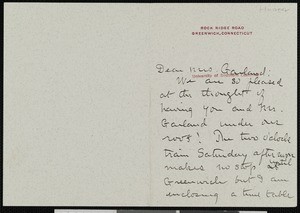 ROCK RIDGE ROAD
GREENWICH, CONNECTICUT
Dear Mrs. Garland:
We are so pleased
at the thought of
having you and Mr.
Garland under our
roof! The two o'clock
train Saturday afternoon
makes no stop at
Greenwich but I am
enclosing a time table